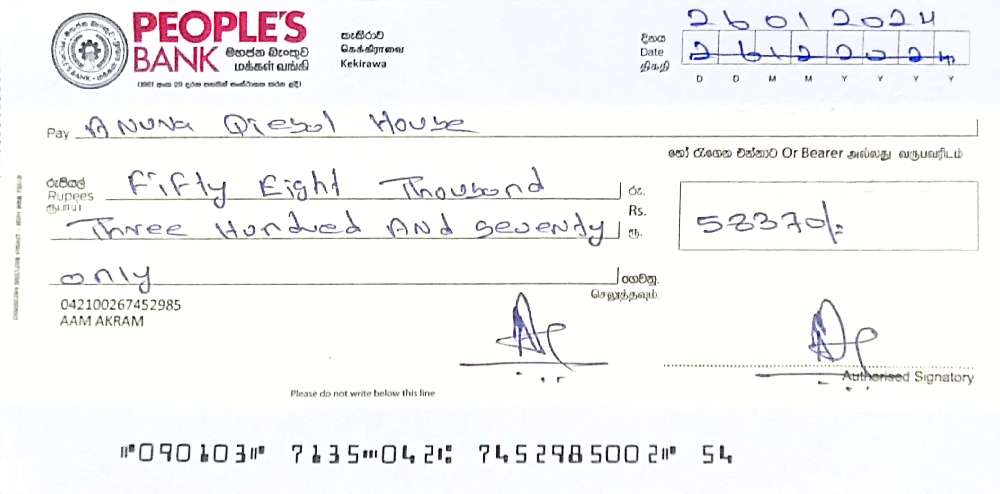 26012024
PEOPLE'S BANK
මහජන බැංකුව
மக்கள் வங்கி
(1961 අංක 29 දරන පනතින් සංස්ථාගත කරන ලදී)
කැකිරාව
கெக்கிராவை
Kekirawa
දිනය
Date
திகதி
26122024
D D M M Y Y Y Y
Pay Anuna Diesel House
හෝ රැගෙන එන්නාට Or Bearer அல்லது வருபவரிடம்
රුපියල්
Rupees
ரூபாய்
Fifty Eight Thousand
Three Hundred And Seventy
only
රු.
Rs.
ரூ.
58370/-
ගෙවනු.
செலுத்தவும்.
042100267452985
AAM AKRAM
Authorised Signatory
Please do not write below this line
⑈090103⑈ 7135⑉042⑆ 7452985002⑈ 54